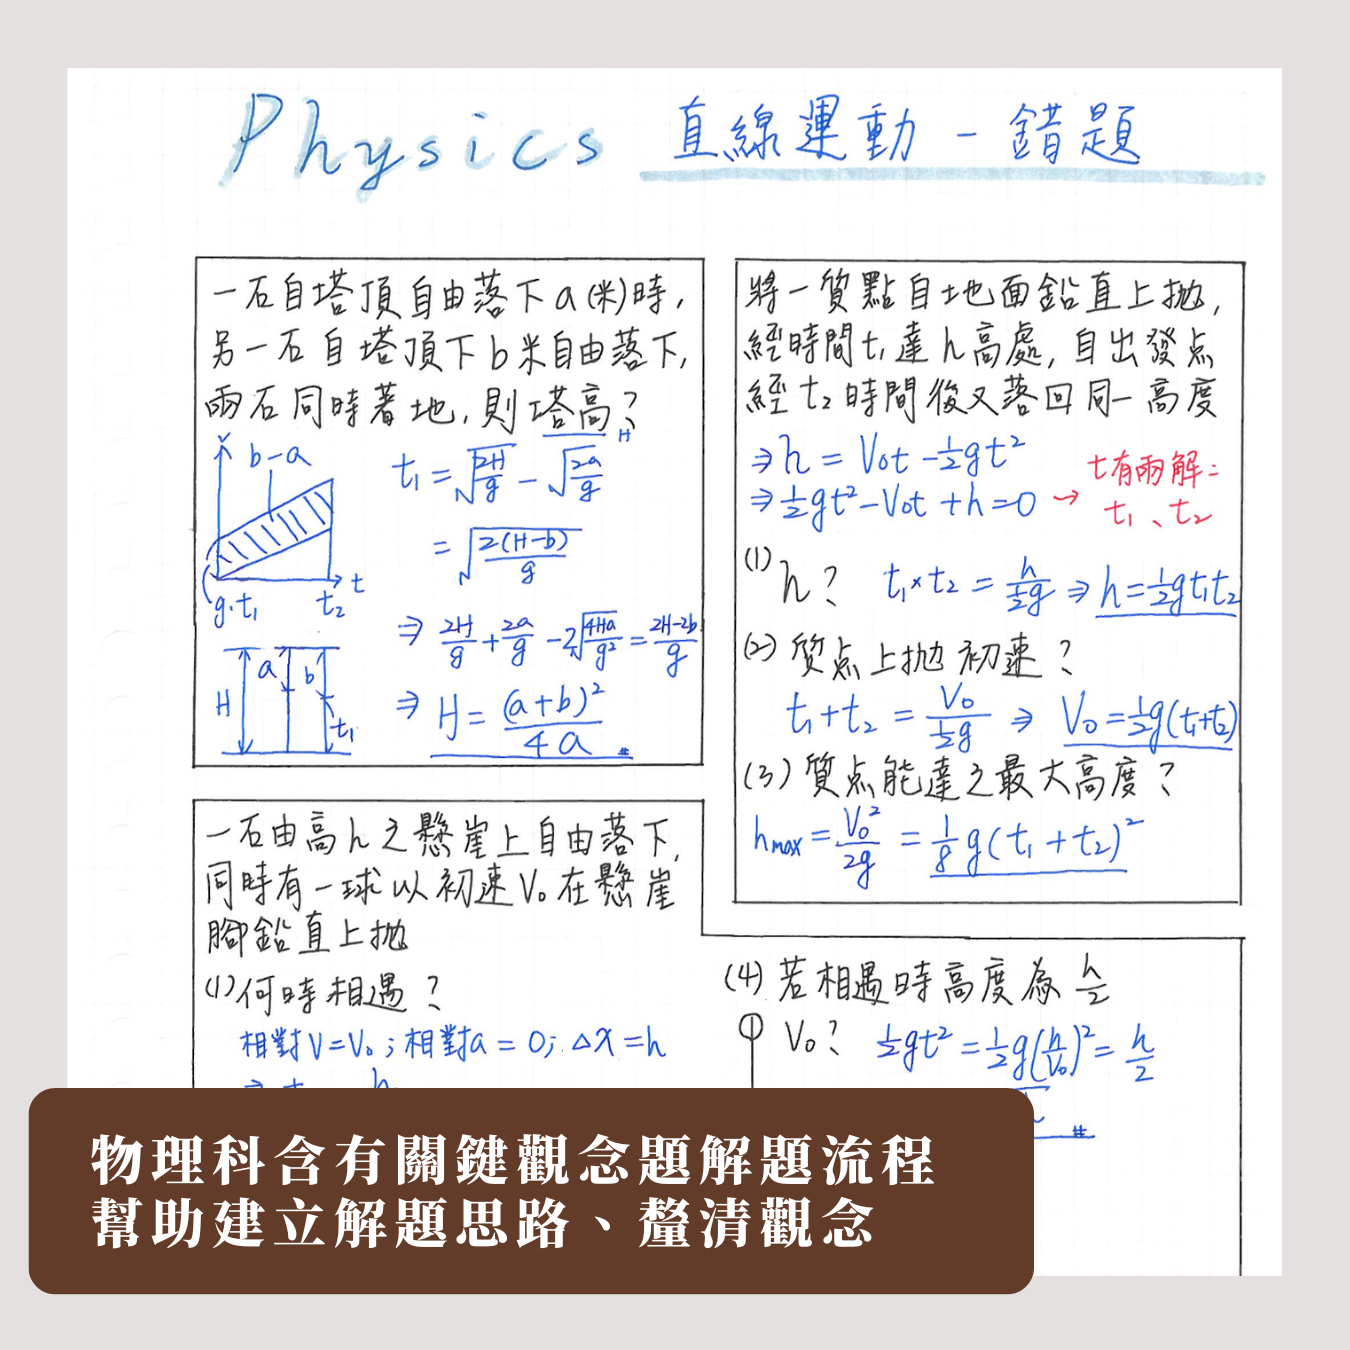 Physics 直線運動 - 錯題
一石自塔頂自由落下a(米)時,
另一石自塔頂下b米自由落下,
兩石同時著地,則塔高?
H
b-a
t
g·t₁
t₂
t₁ = √(2H/g) - √(2a/g)
= √(2(H-b)/g)
⇒ 2H/g + 2a/g - 2√(4Ha/g²) = 2H-2b/g
⇒ H = (a+b)²/4a #
H
a
b
t₁
將一質點自地面鉛直上拋,
經時間t₁達h高處,自出發点
經t₂時間後又落回同一高度
⇒ h = V₀t - ½gt²
⇒ ½gt² - V₀t + h = 0 → t有兩解:
t₁、t₂
(1) h? t₁×t₂ = h/½g ⇒ h=½gt₁t₂
(2) 質点上拋初速?
t₁+t₂ = V₀/½g ⇒ V₀=½g(t₁+t₂)
(3) 質点能達之最大高度?
hmax = V₀²/2g = ⅛g(t₁+t₂)²
一石由高h之懸崖上自由落下,
同時有一球以初速V₀在懸崖
腳鉛直上拋
(1)何時相遇?
相對V=V₀;相對a=0;△x=h
(4)若相遇時高度為h/2
V₀? ½gt² = ½g(h/V₀)² = h/2
#
物理科含有關鍵觀念題解題流程
幫助建立解題思路、釐清觀念